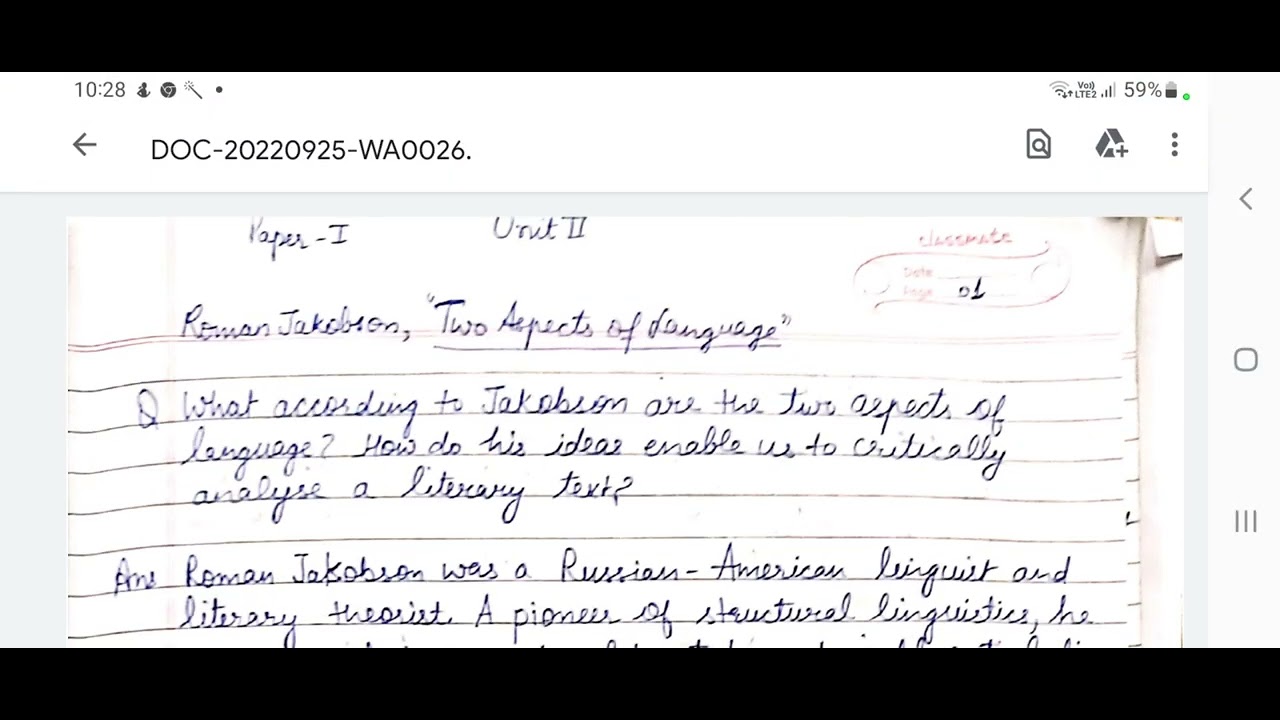 10:28
Vo))
LTE2
59%
DOC-20220925-WA0026.
Paper-I
Unit II
classmate
Date
Page 01
Roman Jakobson, "Two Aspects of Language"
Q What according to Jakobson are the two aspects of
language? How do his ideas enable us to critically
analyse a literary text?
Ans Roman Jakobson was a Russian-American linguist and
literary theorist. A pioneer of structural linguistics, he